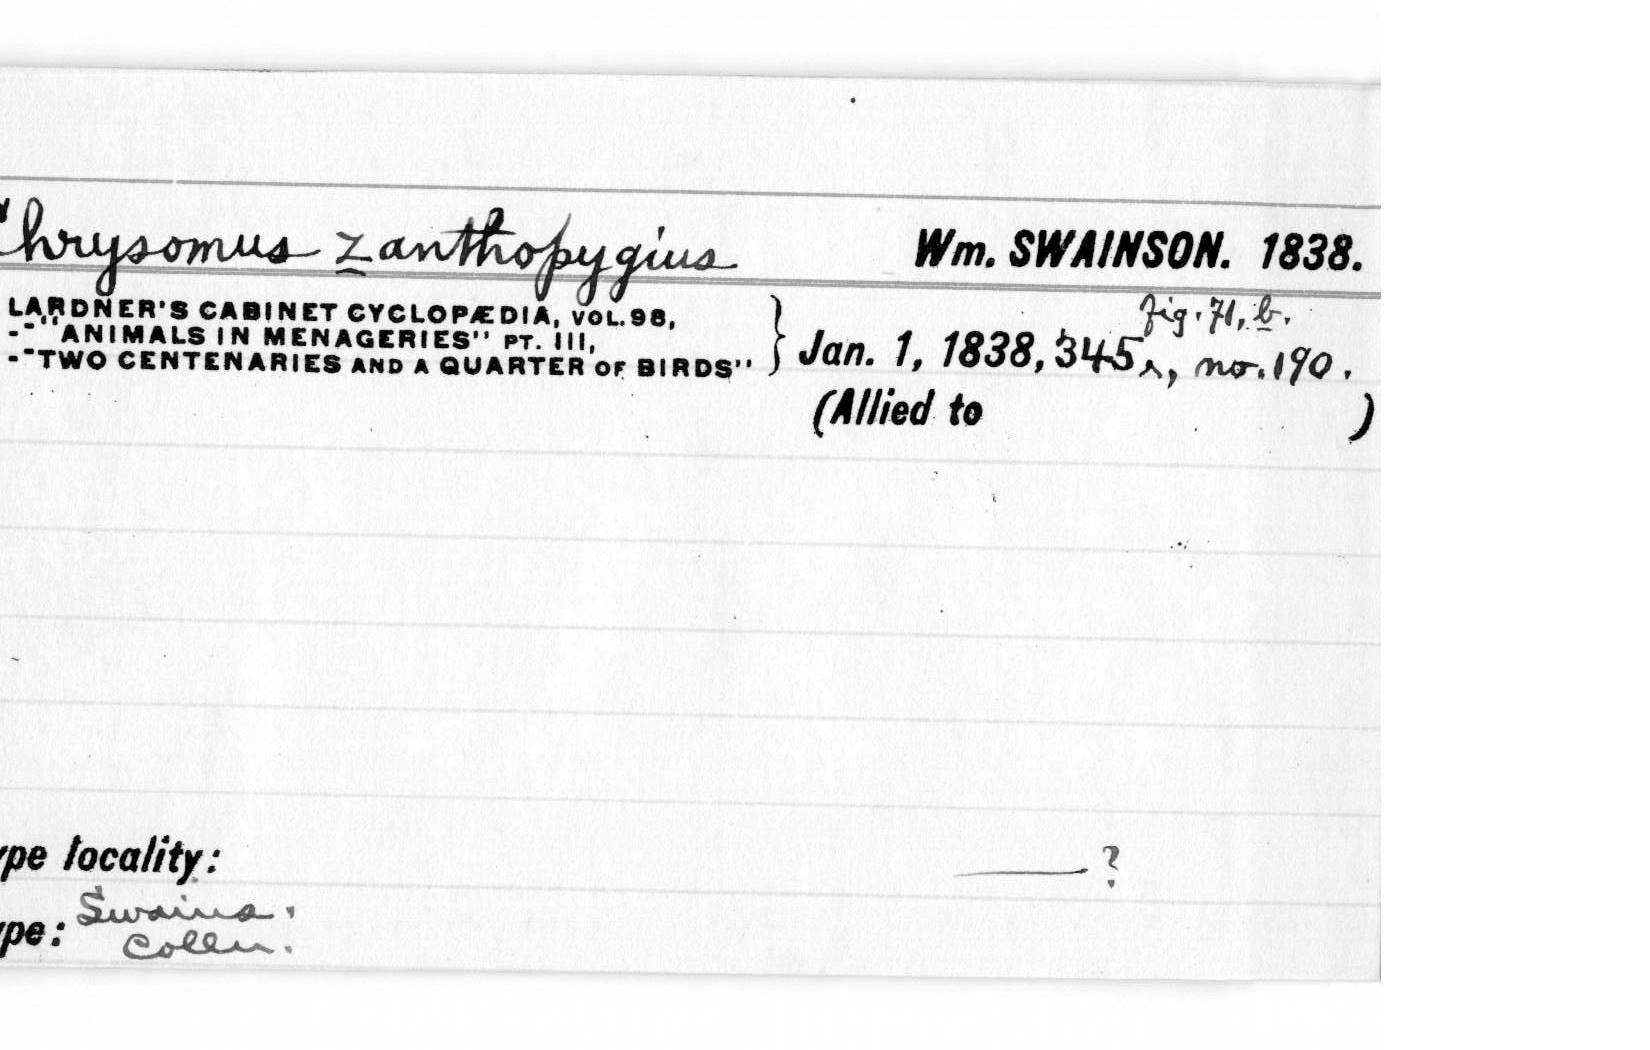 Chrysomus zanthopygius Wm. SWAINSON. 1838.
LARDNER'S CABINET CYCLOPÆDIA, VOL. 98,
-"-"ANIMALS IN MENAGERIES" PT. III,
-"-TWO CENTENARIES AND A QUARTER OF BIRDS"
fig. 71, b.
} Jan. 1, 1838, 345, no. 190.
(Allied to )
ype locality: ——?
ype: Swains.
Colln.